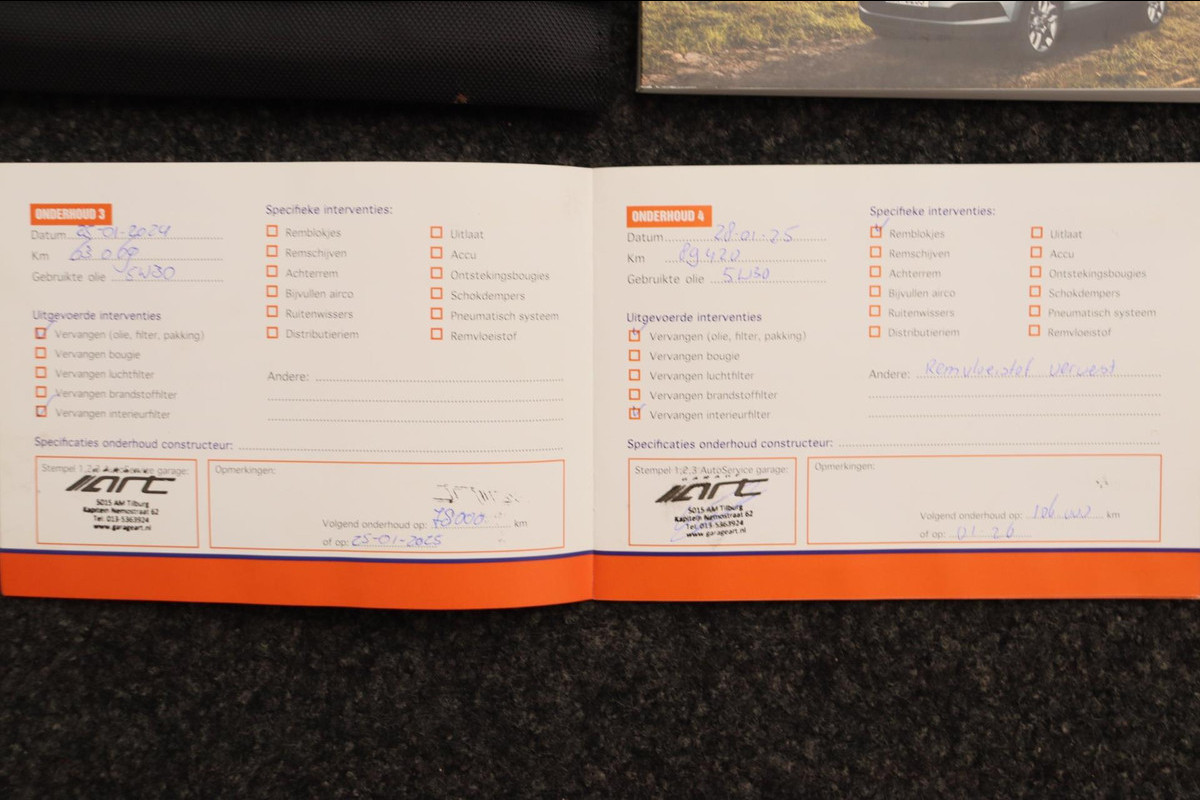 ONDERHOUD 3
Datum 25-01-2024
Km 63 069
Gebruikte olie 5W30
Uitgevoerde interventies
Vervangen (olie, filter, pakking)
Vervangen bougie
Vervangen luchtfilter
Vervangen brandstoffilter
Vervangen interieurfilter
Specifieke interventies:
Remblokjes
Remschijven
Achterrem
Bijvullen airco
Ruitenwissers
Distributieriem
Uitlaat
Accu
Ontstekingsbougies
Schokdempers
Pneumatisch systeem
Remvloeistof
Andere:
Specificaties onderhoud constructeur:
Stempel 1,2,3 AutoService garage:
art
5015 AM Tilburg
Kapitein Nemostraat 62
Tel: 013-5363924
www.garageart.nl
Opmerkingen:
Volgend onderhoud op: 78000 km
of op: 25-01-2025
ONDERHOUD 4
Datum 28-01-25
Km 89420
Gebruikte olie 5W30
Uitgevoerde interventies
Vervangen (olie, filter, pakking)
Vervangen bougie
Vervangen luchtfilter
Vervangen brandstoffilter
Vervangen interieurfilter
Specifieke interventies:
Remblokjes
Remschijven
Achterrem
Bijvullen airco
Ruitenwissers
Distributieriem
Uitlaat
Accu
Ontstekingsbougies
Schokdempers
Pneumatisch systeem
Remvloeistof
Andere: Remvloeistof ververst
Specificaties onderhoud constructeur:
Stempel 1,2,3 AutoService garage:
GARAGE
art
5015 AM Tilburg
Kapitein Nemostraat 62
Tel: 013-5363924
www.garageart.nl
Opmerkingen:
Volgend onderhoud op: 106.000 km
of op: 01-26